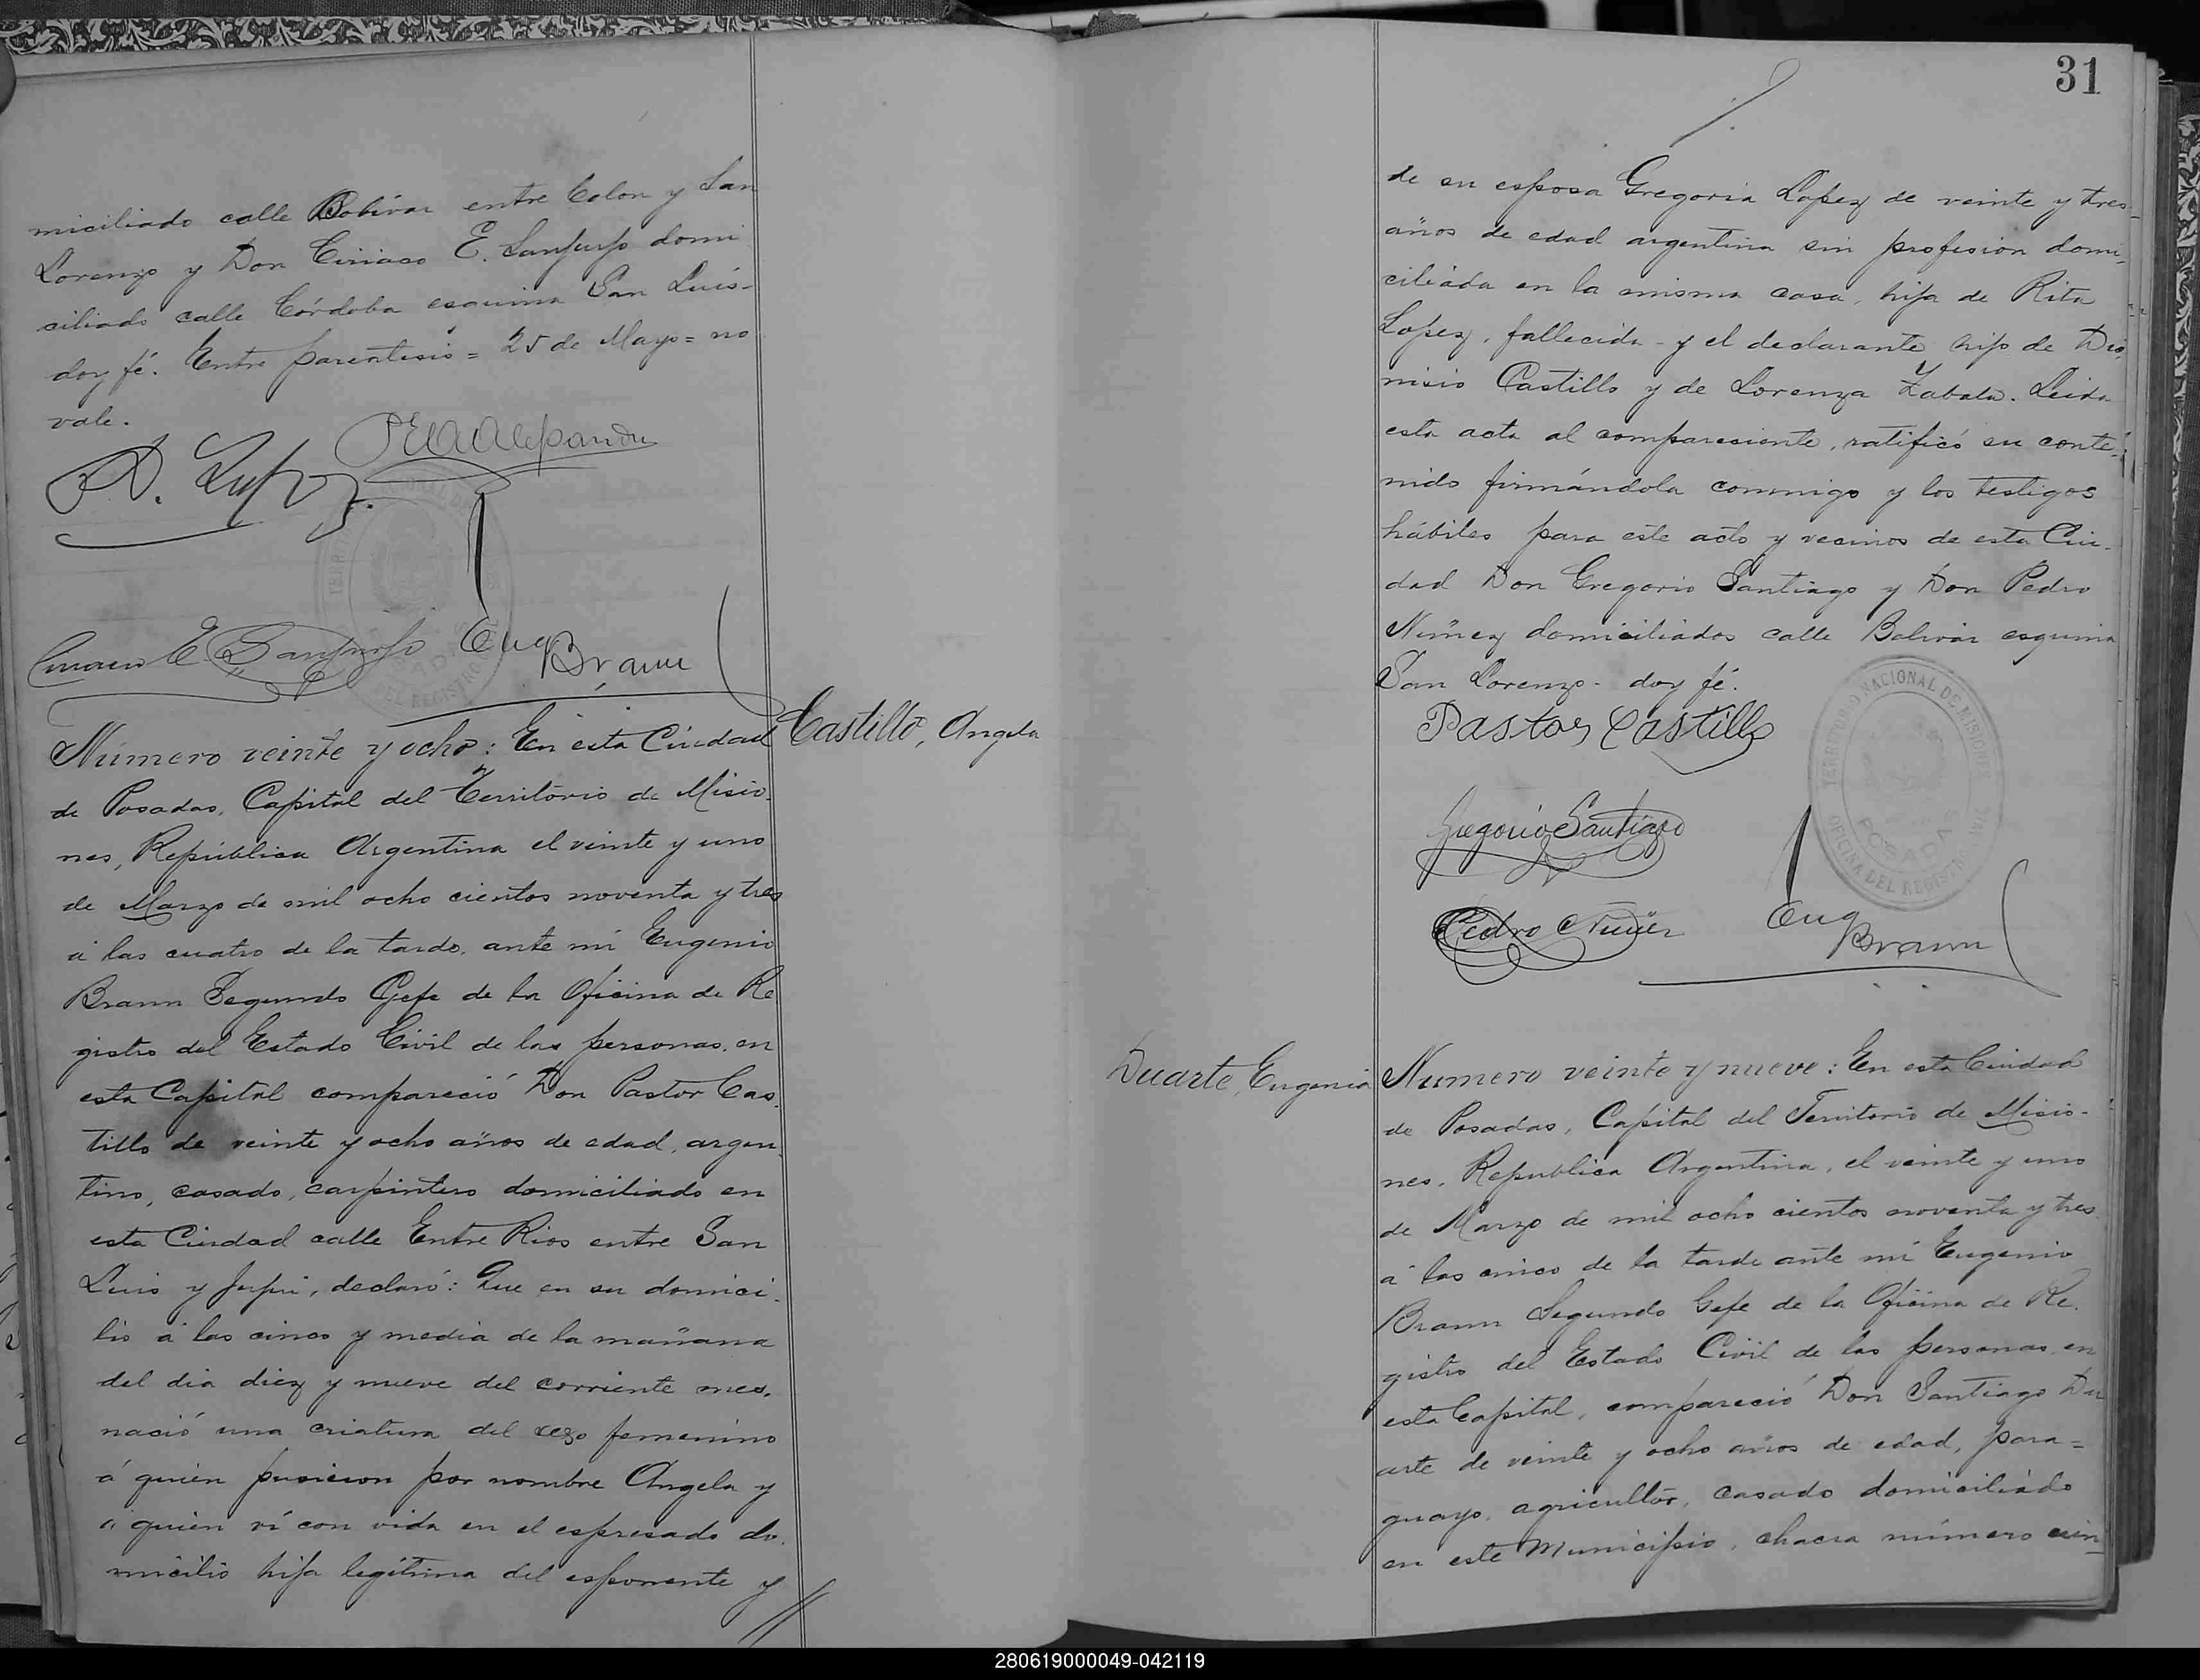 miciliado calle Bolívar entre Colon y San
Lorenzo y Don Ciriaco E. Sanjurjo domi
ciliado calle Córdoba esquina San Luis-
doy fé. Entre parentesis = 25 de Mayo = no
vale.
Eug Braun
Número veinte y ocho: En esta Ciudad
de Posadas, Capital del Territorio de Misio-
nes, República Argentina el veinte y uno
de Marzo de mil ocho cientos noventa y tres
á las cuatro de la tarde, ante mí Eugenio
Braun Segundo Gefe de la Oficina de Re
gistro del Estado Civil de las personas, en
esta Capital compareció Don Pastor Cas-
tillo de veinte y ocho años de edad, argen-
tino, casado, carpintero domiciliado en
esta Ciudad calle Entre Rios entre San
Luis y Jujui, declaró: Que en su domici-
lio á las cinco y media de la mañana
del dia diez y nueve del corriente mes,
nació una criatura del sexo femenino
á quien pusieron por nombre Angela y
á quien ví con vida en el espresado do-
micilio hija legítima del esponente y
Castillo, Angela
31
de su esposa Gregoria Lopez de veinte y tres
años de edad argentina sin profesion domi-
ciliada en la misma casa, hija de Rita
Lopez, fallecida - y el declarante hijo de Dio-
nisio Castillo y de Lorenza Zabala. Leida
esta acta al compareciente, ratificó su conte-
nido firmándola conmigo y los testigos
hábiles para este acto y vecinos de esta Ciu-
dad Don Gregorio Santiago y Don Pedro
Nuñez domiciliados calle Bolivar esquina
San Lorenzo - doy fé.
Pastor Castillo
TERRITORIO NACIONAL DE MISIONES
POSADAS
OFICINA DEL REGISTRO
Gregorio Santiago
Pedro Nuñez
Eug Braun
Duarte, Eugenia
Numero veinte y nueve: En esta Ciudad
de Posadas, Capital del Territorio de Misio-
nes, Republica Argentina, el veinte y uno
de Marzo de mil ocho cientos noventa y tres
á las cinco de la tarde ante mí Eugenio
Braun Segundo Gefe de la Oficina de Re-
gistro del Estado Civil de las personas en
esta Capital, compareció Don Santiago Du
arte de veinte y ocho años de edad, para=
guayo, agricultor, casado domiciliado
en este Municipio, chacra número cin-
280619000049-042119